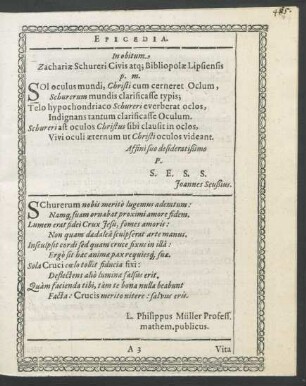 EPICEDIA.
In obitum
Zachariæ Schureri Civis atq; Bibliopolæ Lipsensis
p. m.
SOl oculus mundi, Christi cum cerneret Oclum,
Schurerum mundis clarificasse typis;
Telo hypochondriaco Schureri everberat oclos,
Indignans tantum clarificasse Oculum.
Schureri ast oculos Christus sibi clausit in oclos,
Vivi oculi æternum ut Christi oculos videant.
Affini suo desideratissimo
P.
S. E. S. S.
Joannes Seussius.
SChurerum nobis meritò lugemus ademtum:
Namq; suam ornabat proximi amore fidem.
Lumen erat fidei Crux Jesu, fomes amoris:
Non quam dædaleâ sculpserat arte manus.
Insculpsit cordi sed quam cruce fixus in illâ:
Ergò sit hac animæ pax requiesq; suæ.
Sola Cruci cælo tollit fiducia fixi:
Deflectens aliò lumina falsus erit,
Quàm facienda tibi, tàm te bona nulla beabunt
Facta: Crucis merito nitere: salvus eris.
L. Philippus Müller Profess.
mathem. publicus.
A 3 Vita